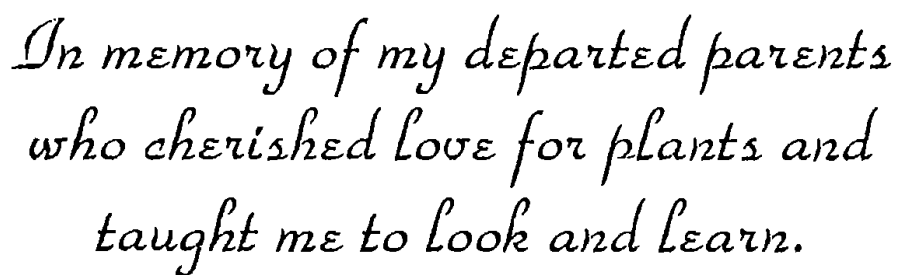 In memory of my departed parents
who cherished love for plants and
taught me to look and learn.